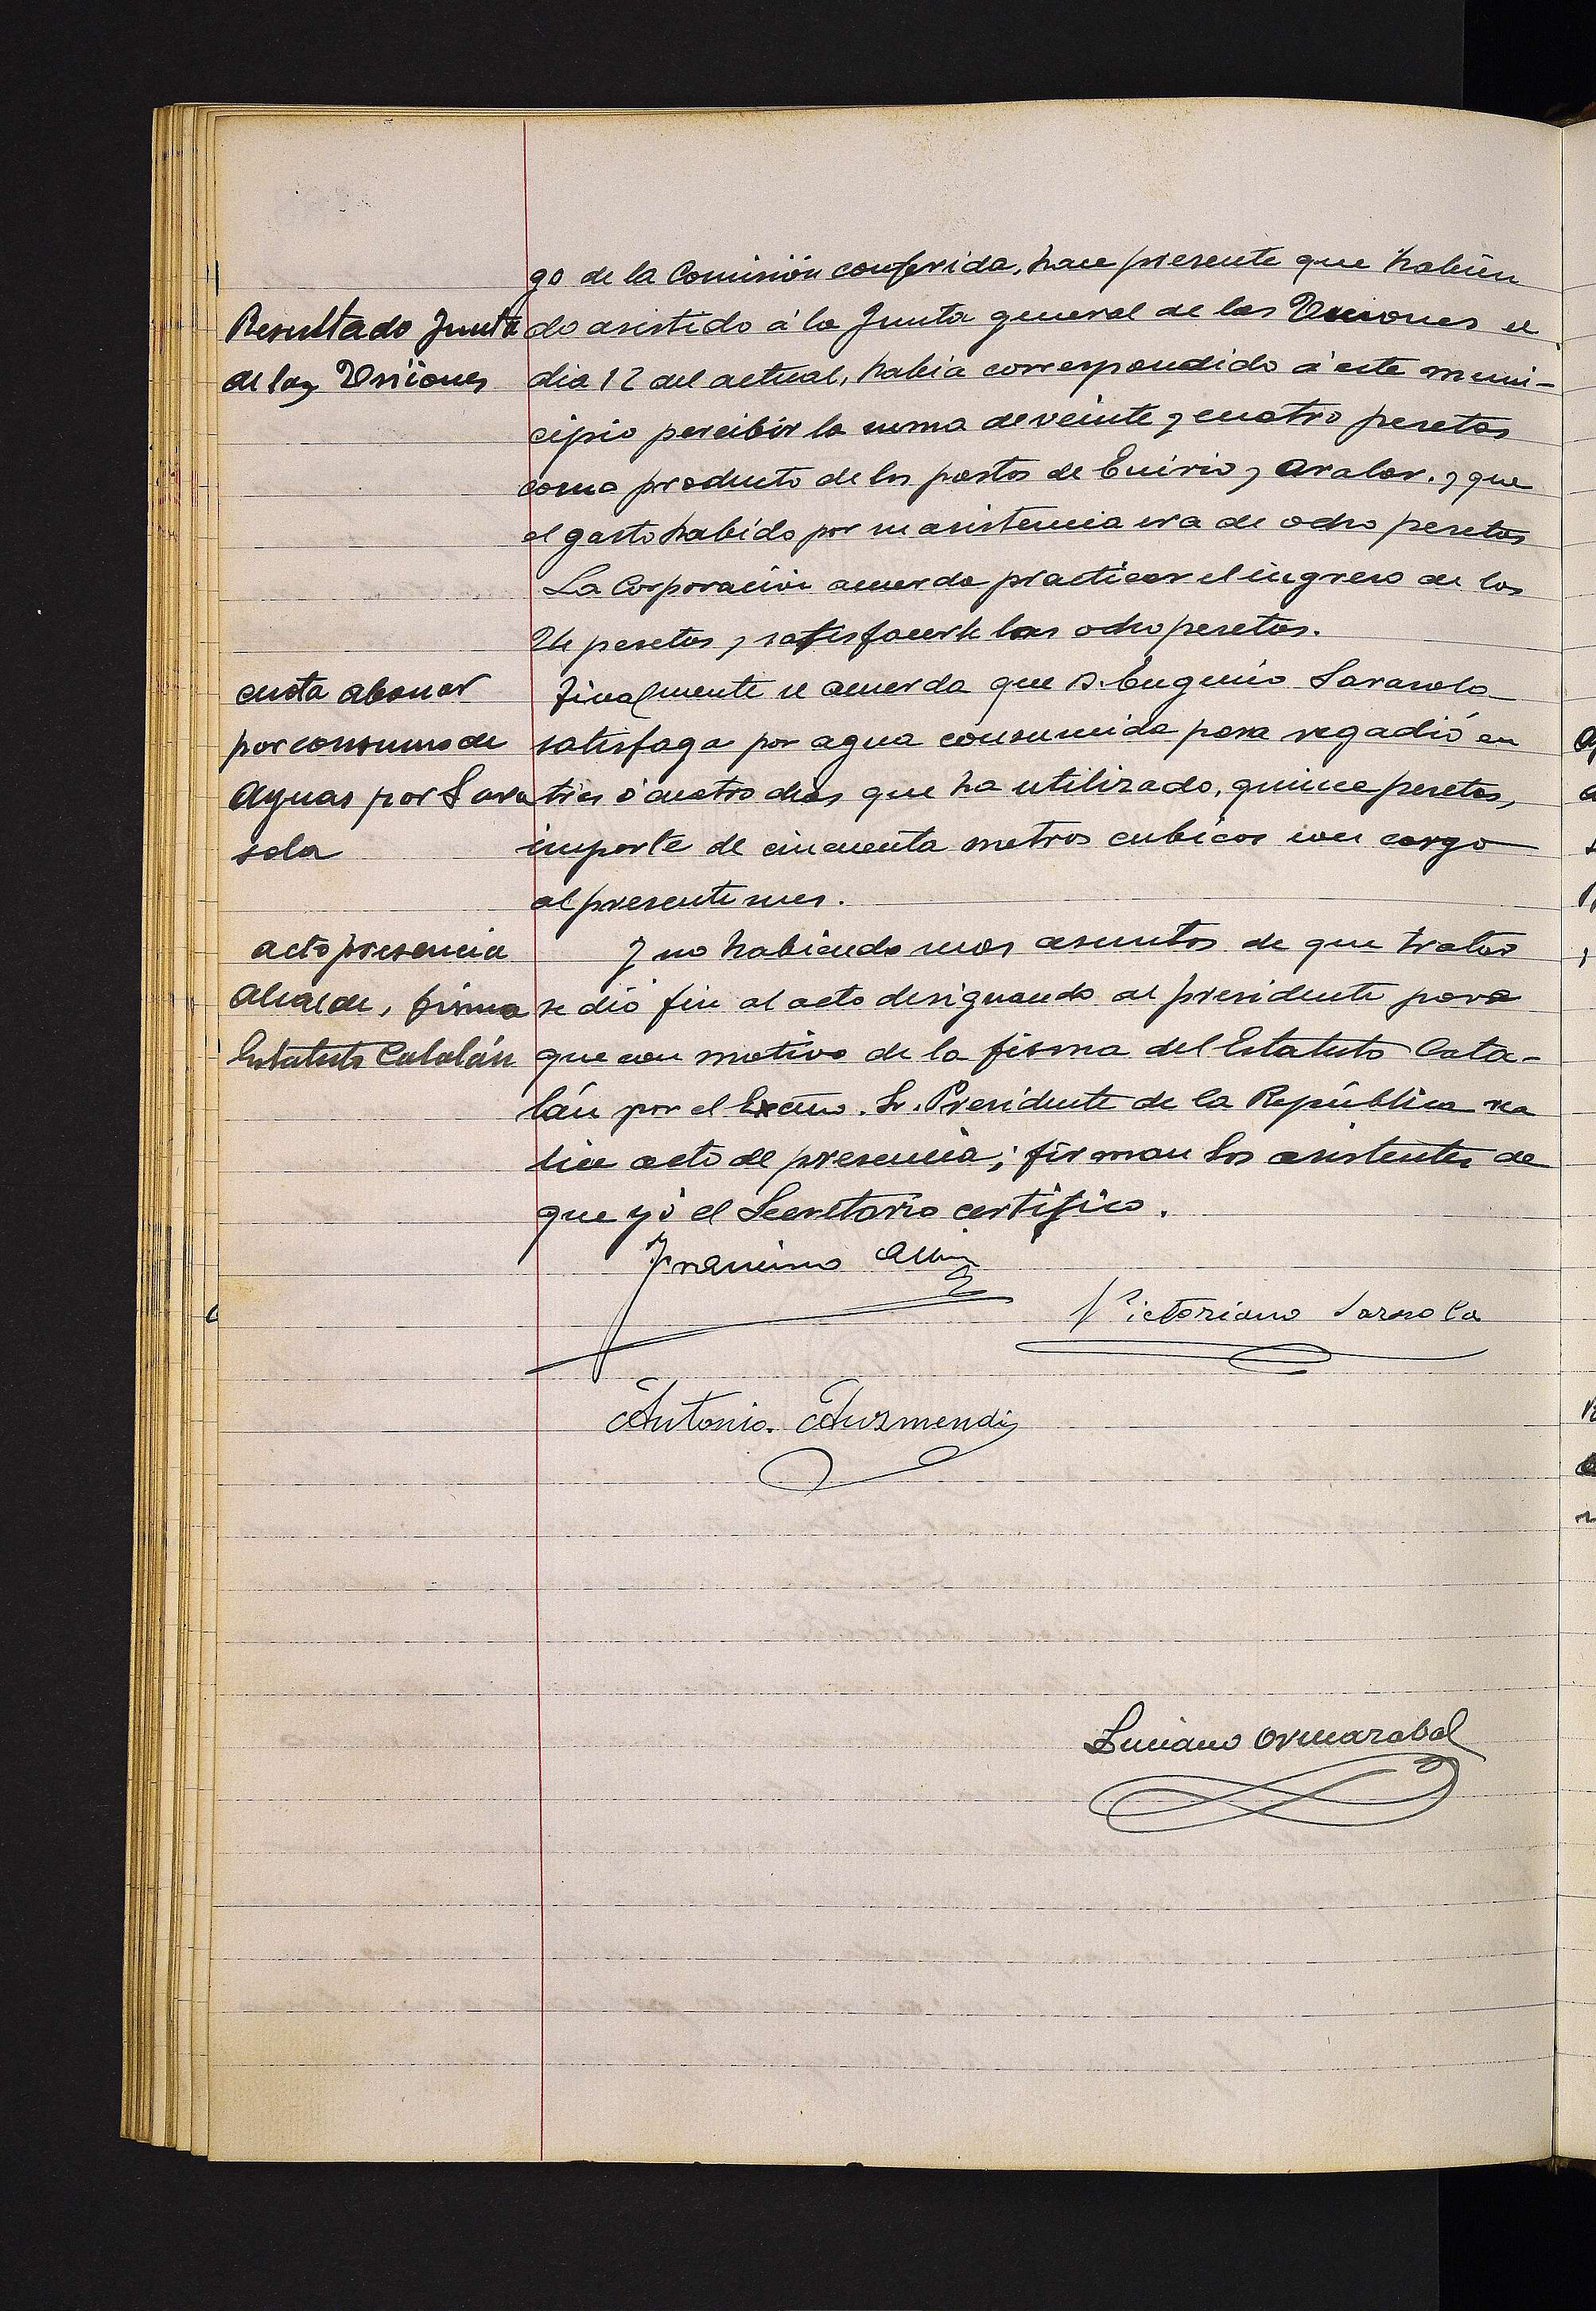 go de la Comisión conferida, hace presente que habien
Resultado Junta
de las Uniones
do asistido á la Junta general de las Uniones el
dia 12 del actual, habia correspondido á este muni-
cipio percibir la suma de veinte y cuatro pesetas
como producto de los pastos de Enirio y Aralar. y que
el gasto habido por su asistencia era de ocho pesetas
La Corporación acuerda practicar el ingreso de las
24 pesetas y satisfacerle las ocho pesetas.
cuota abonar
por consumo de
Aguas por Sara
sola
Finalmente se acuerda que D. Eugenio Sarasola
satisfaga por agua consumida para regadió en
tres ó cuatro dias que ha utilizado, quince pesetas,
importe de cincuenta metros cubicos con cargo
al presente mes.
acto presencia
Alcalde, firma
Estatuto Catalán
Y no habiendo mas asuntos de que tratar
se dió fin al acto designando al presidente para
que con motivo de la firma del Estatuto Cata-
lán por el Excmo. Sr. Presidente de la República rea
lice acto de presencia; firman los asistentes de
que yó el Secretario certifico.
Francisco
Victoriano Sarasola
Antonio Auzmendi
Luciano Ormazabal